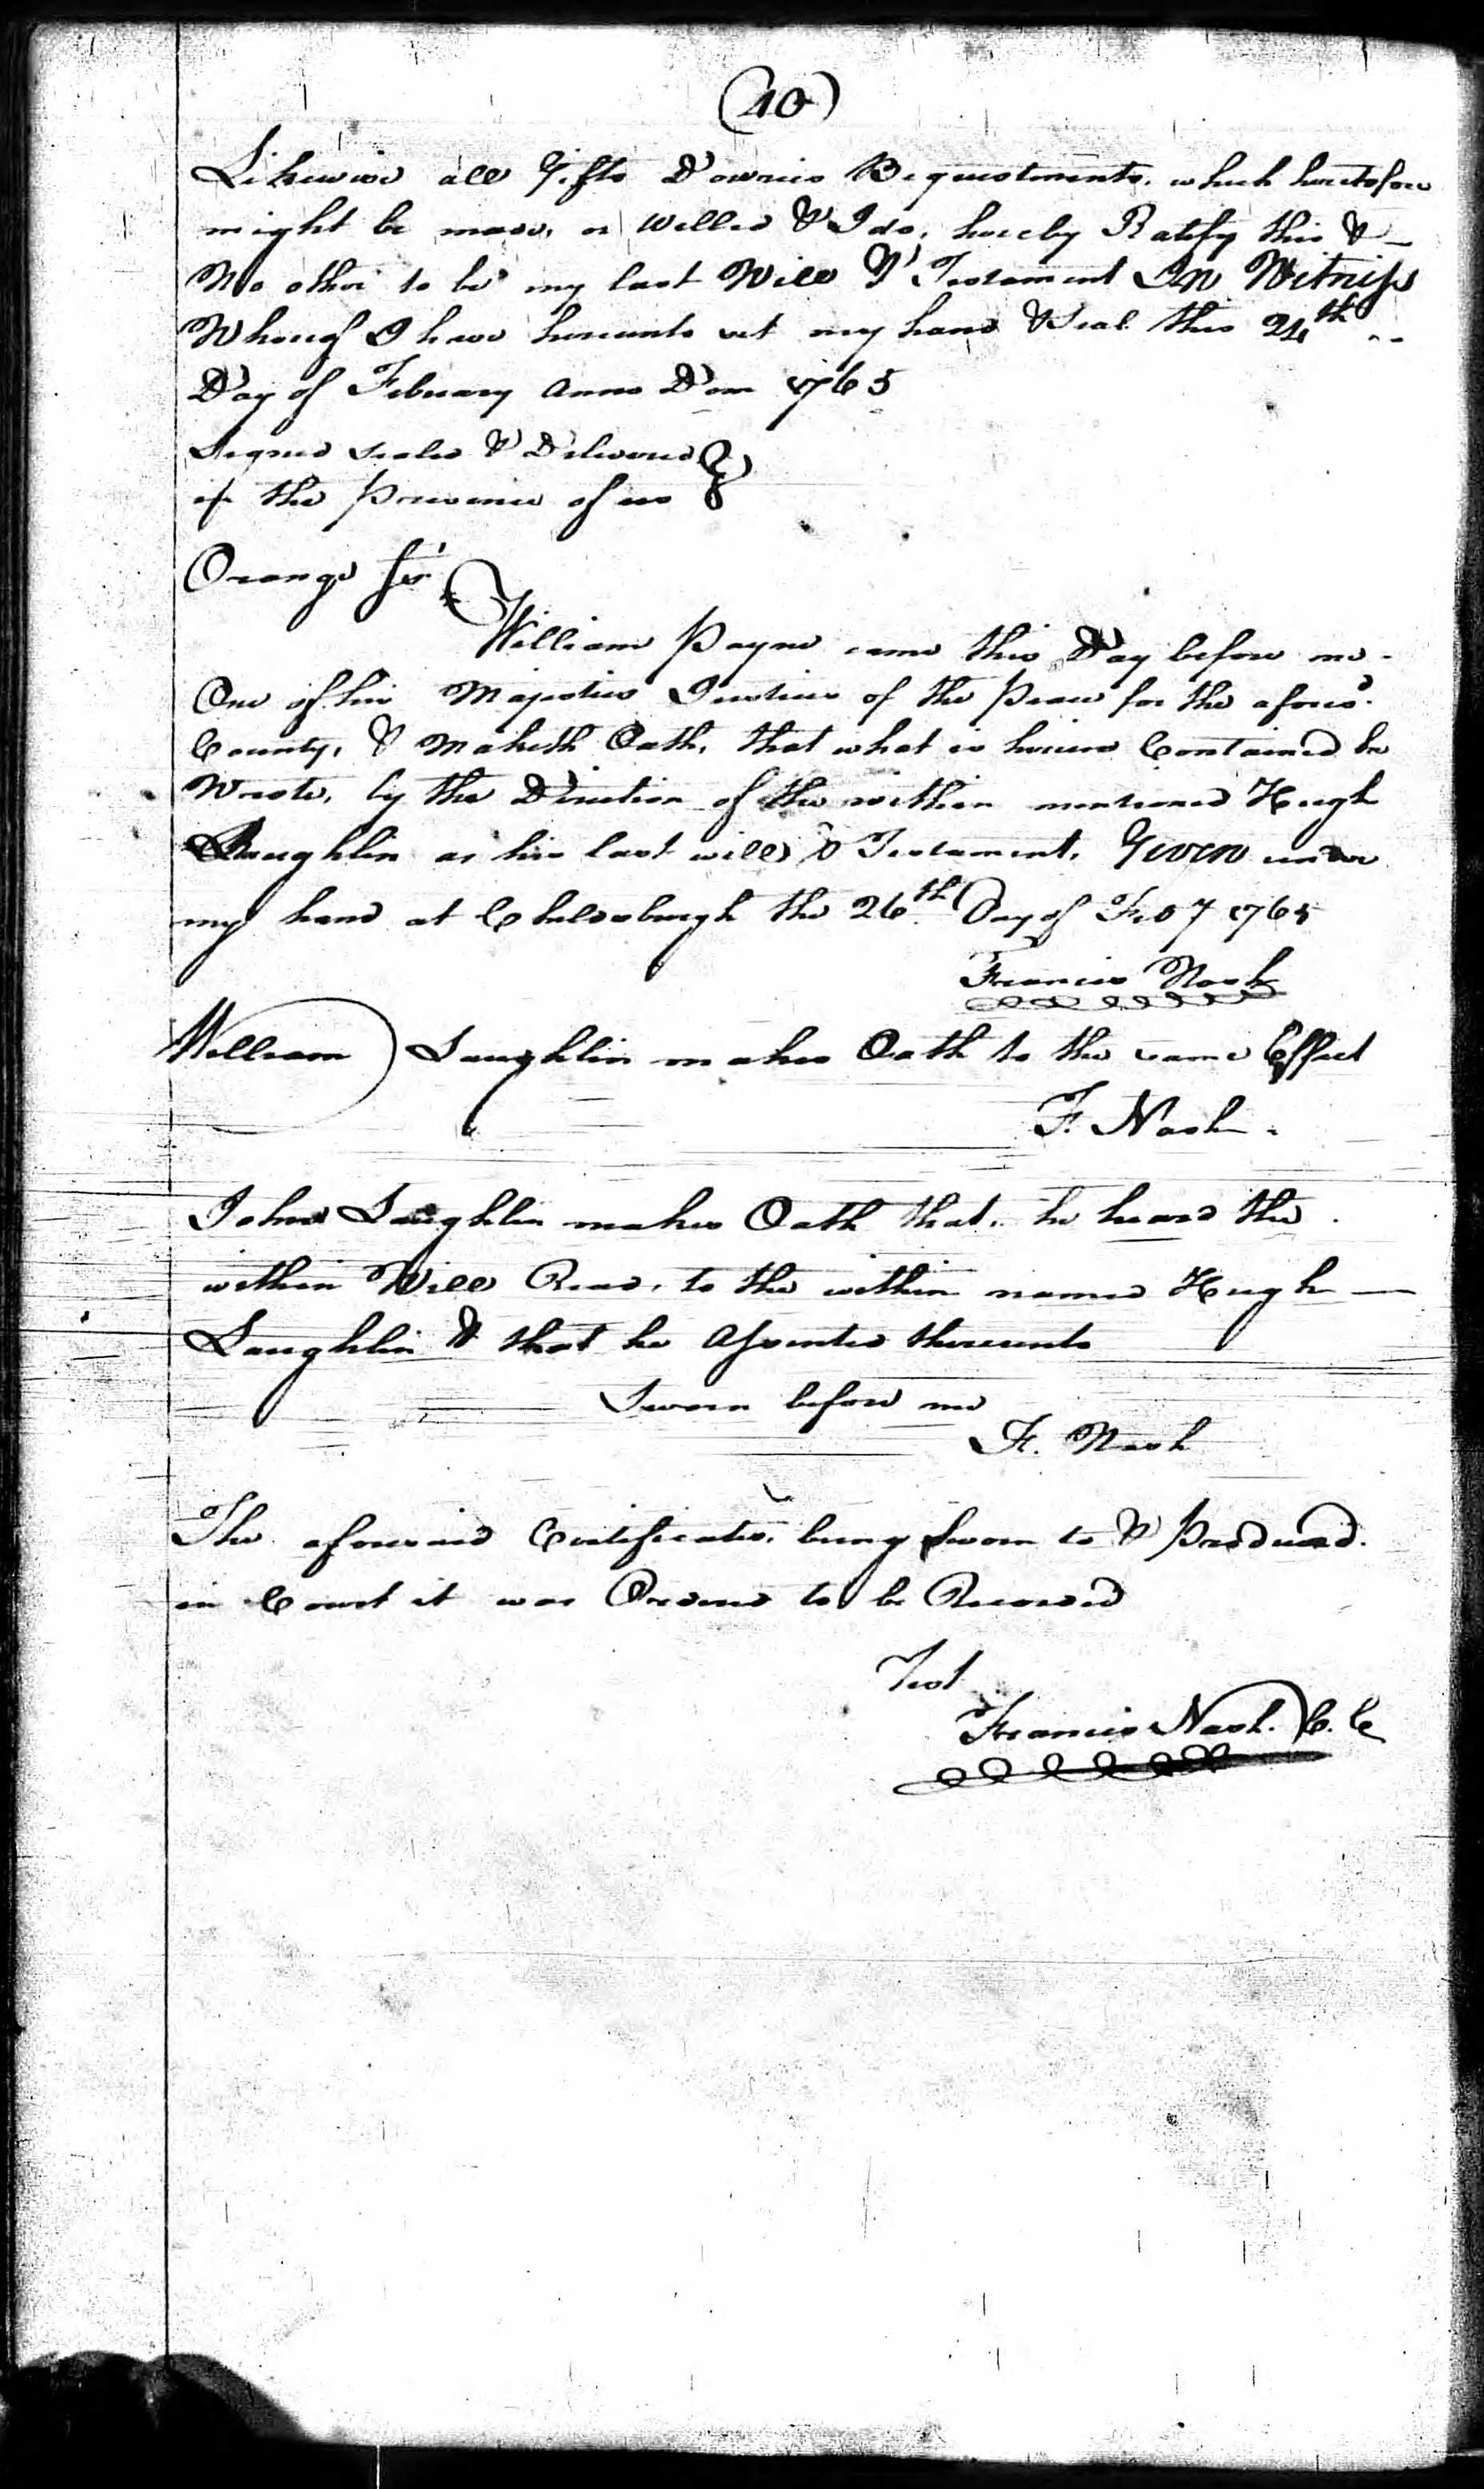 (10)
Likewise all Gifts Dowries Bequestments, which heretofore
might be made, or Willed & I do, hereby Ratify this & —
No other to be my last Will & Testament In Witness
Whereof I have hereunto set my hand & Seal this 24th
Day of Febuary Anno Dom 1765
Signed sealed & Delivered
in the Presence of us
Orange Ss.
William Payne came this Day before me
One of his Majesties Justices of the Peace for the aforesd.
County, & Maketh Oath, that what is herein Contained he
Wrote, by the Direction of the within mentioned Hugh
Laughlin as his last will & Testament. Given under
my hand at Childsburgh the 26th Day of Feby 1765
Francis Nash
William Laughlin makes Oath to the same Effect
F. Nash
John Laughlin makes Oath that, he heard the
within Will Read, to the within named Hugh —
Laughlin & that he Assented thereunto
Sworn before me
F. Nash
The aforesaid Certificates, being Sworn to & Produced.
in Court it was Ordered to be Recorded
Test
Francis Nash. C. C